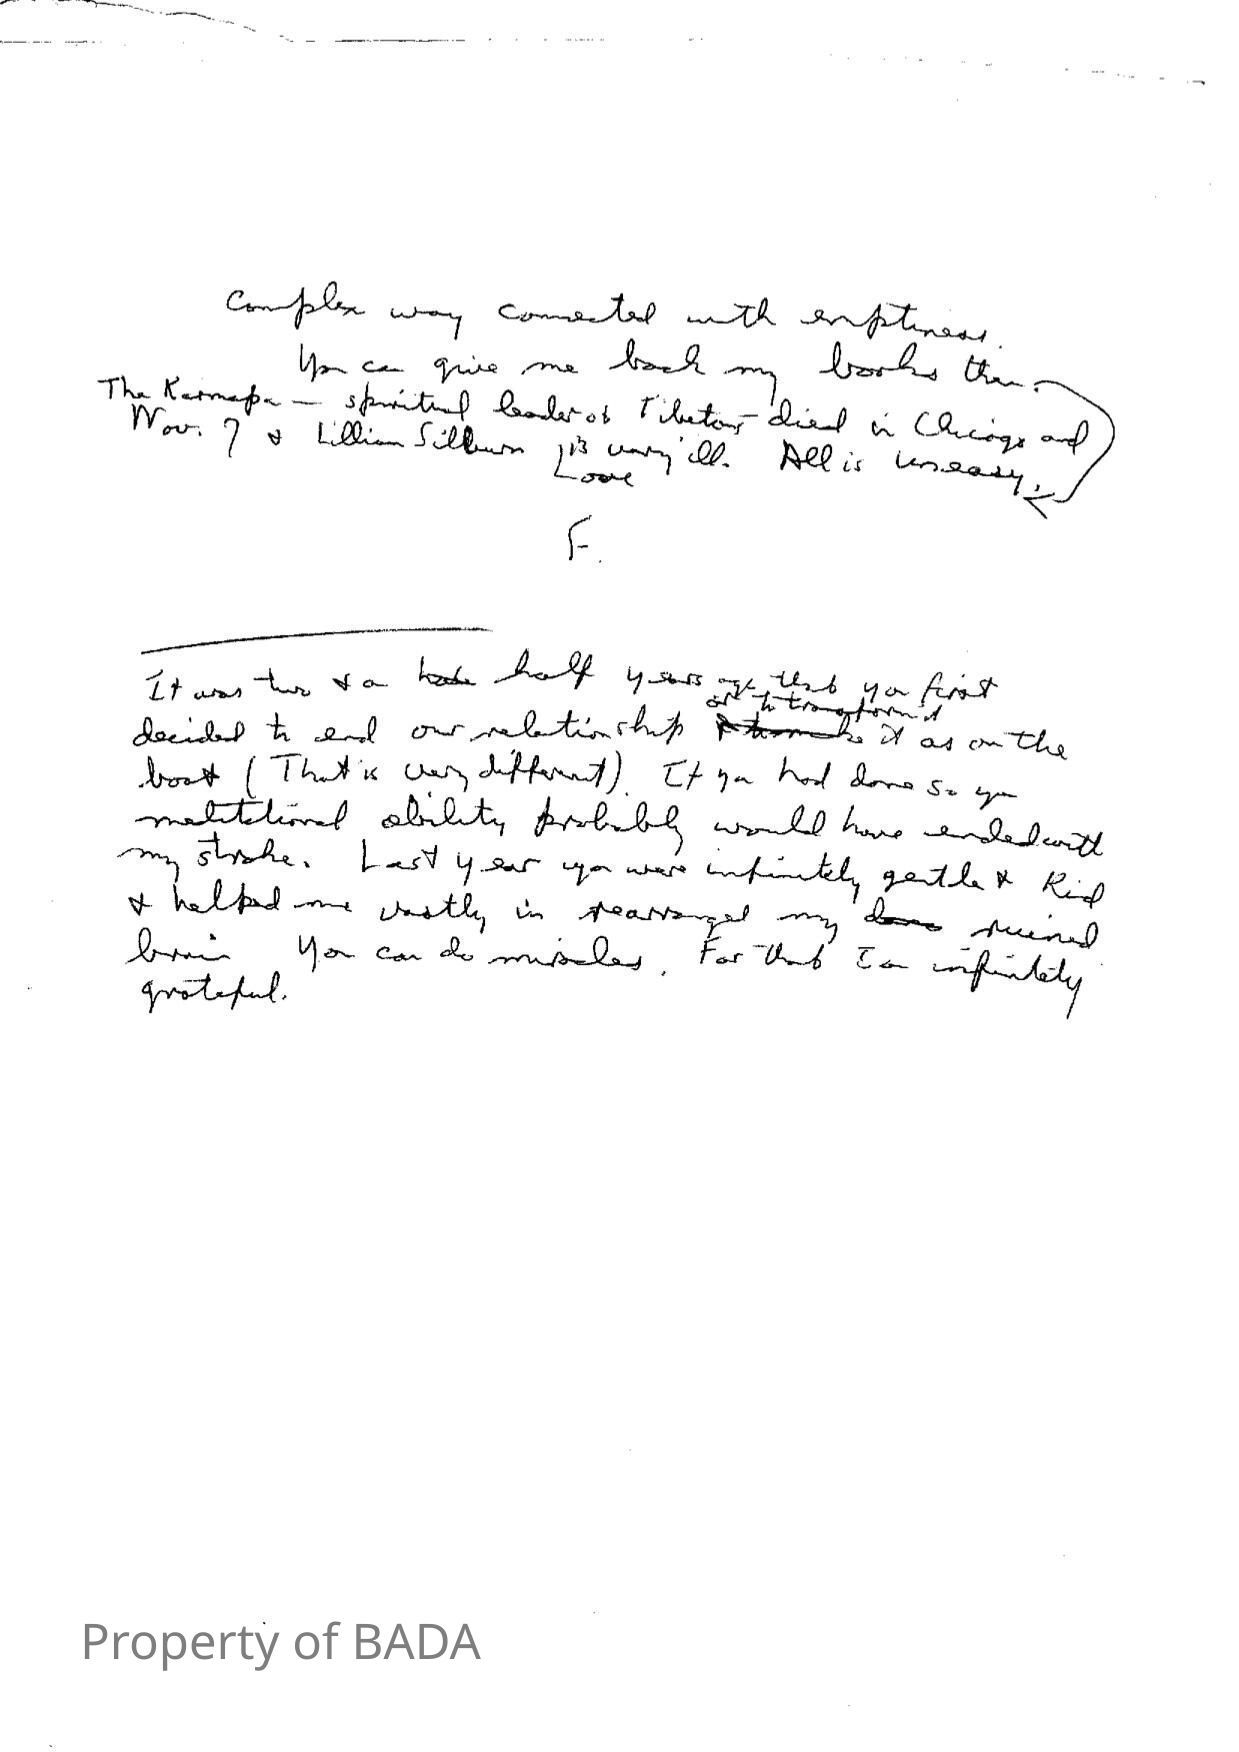 Complex way connected with emptiness.
You can give me back my books then
The Karmapa — spiritual leader of Tibetans died in Chicago and
Nov. 7 & Lillian Silburn is very ill. All is uneasy.
Love
F.
It was two & a half years ago that you first
or to transform it
decided to end our relationship it as on the
boat (That is very different). If you had done so yr
meditational ability probably would have ended with
my stroke. Last year you were infinitely gentle & kind
& helped me vastly in rearranged my ruined
brain You can do miracles. For that I am infinitely
grateful.
Property of BADA